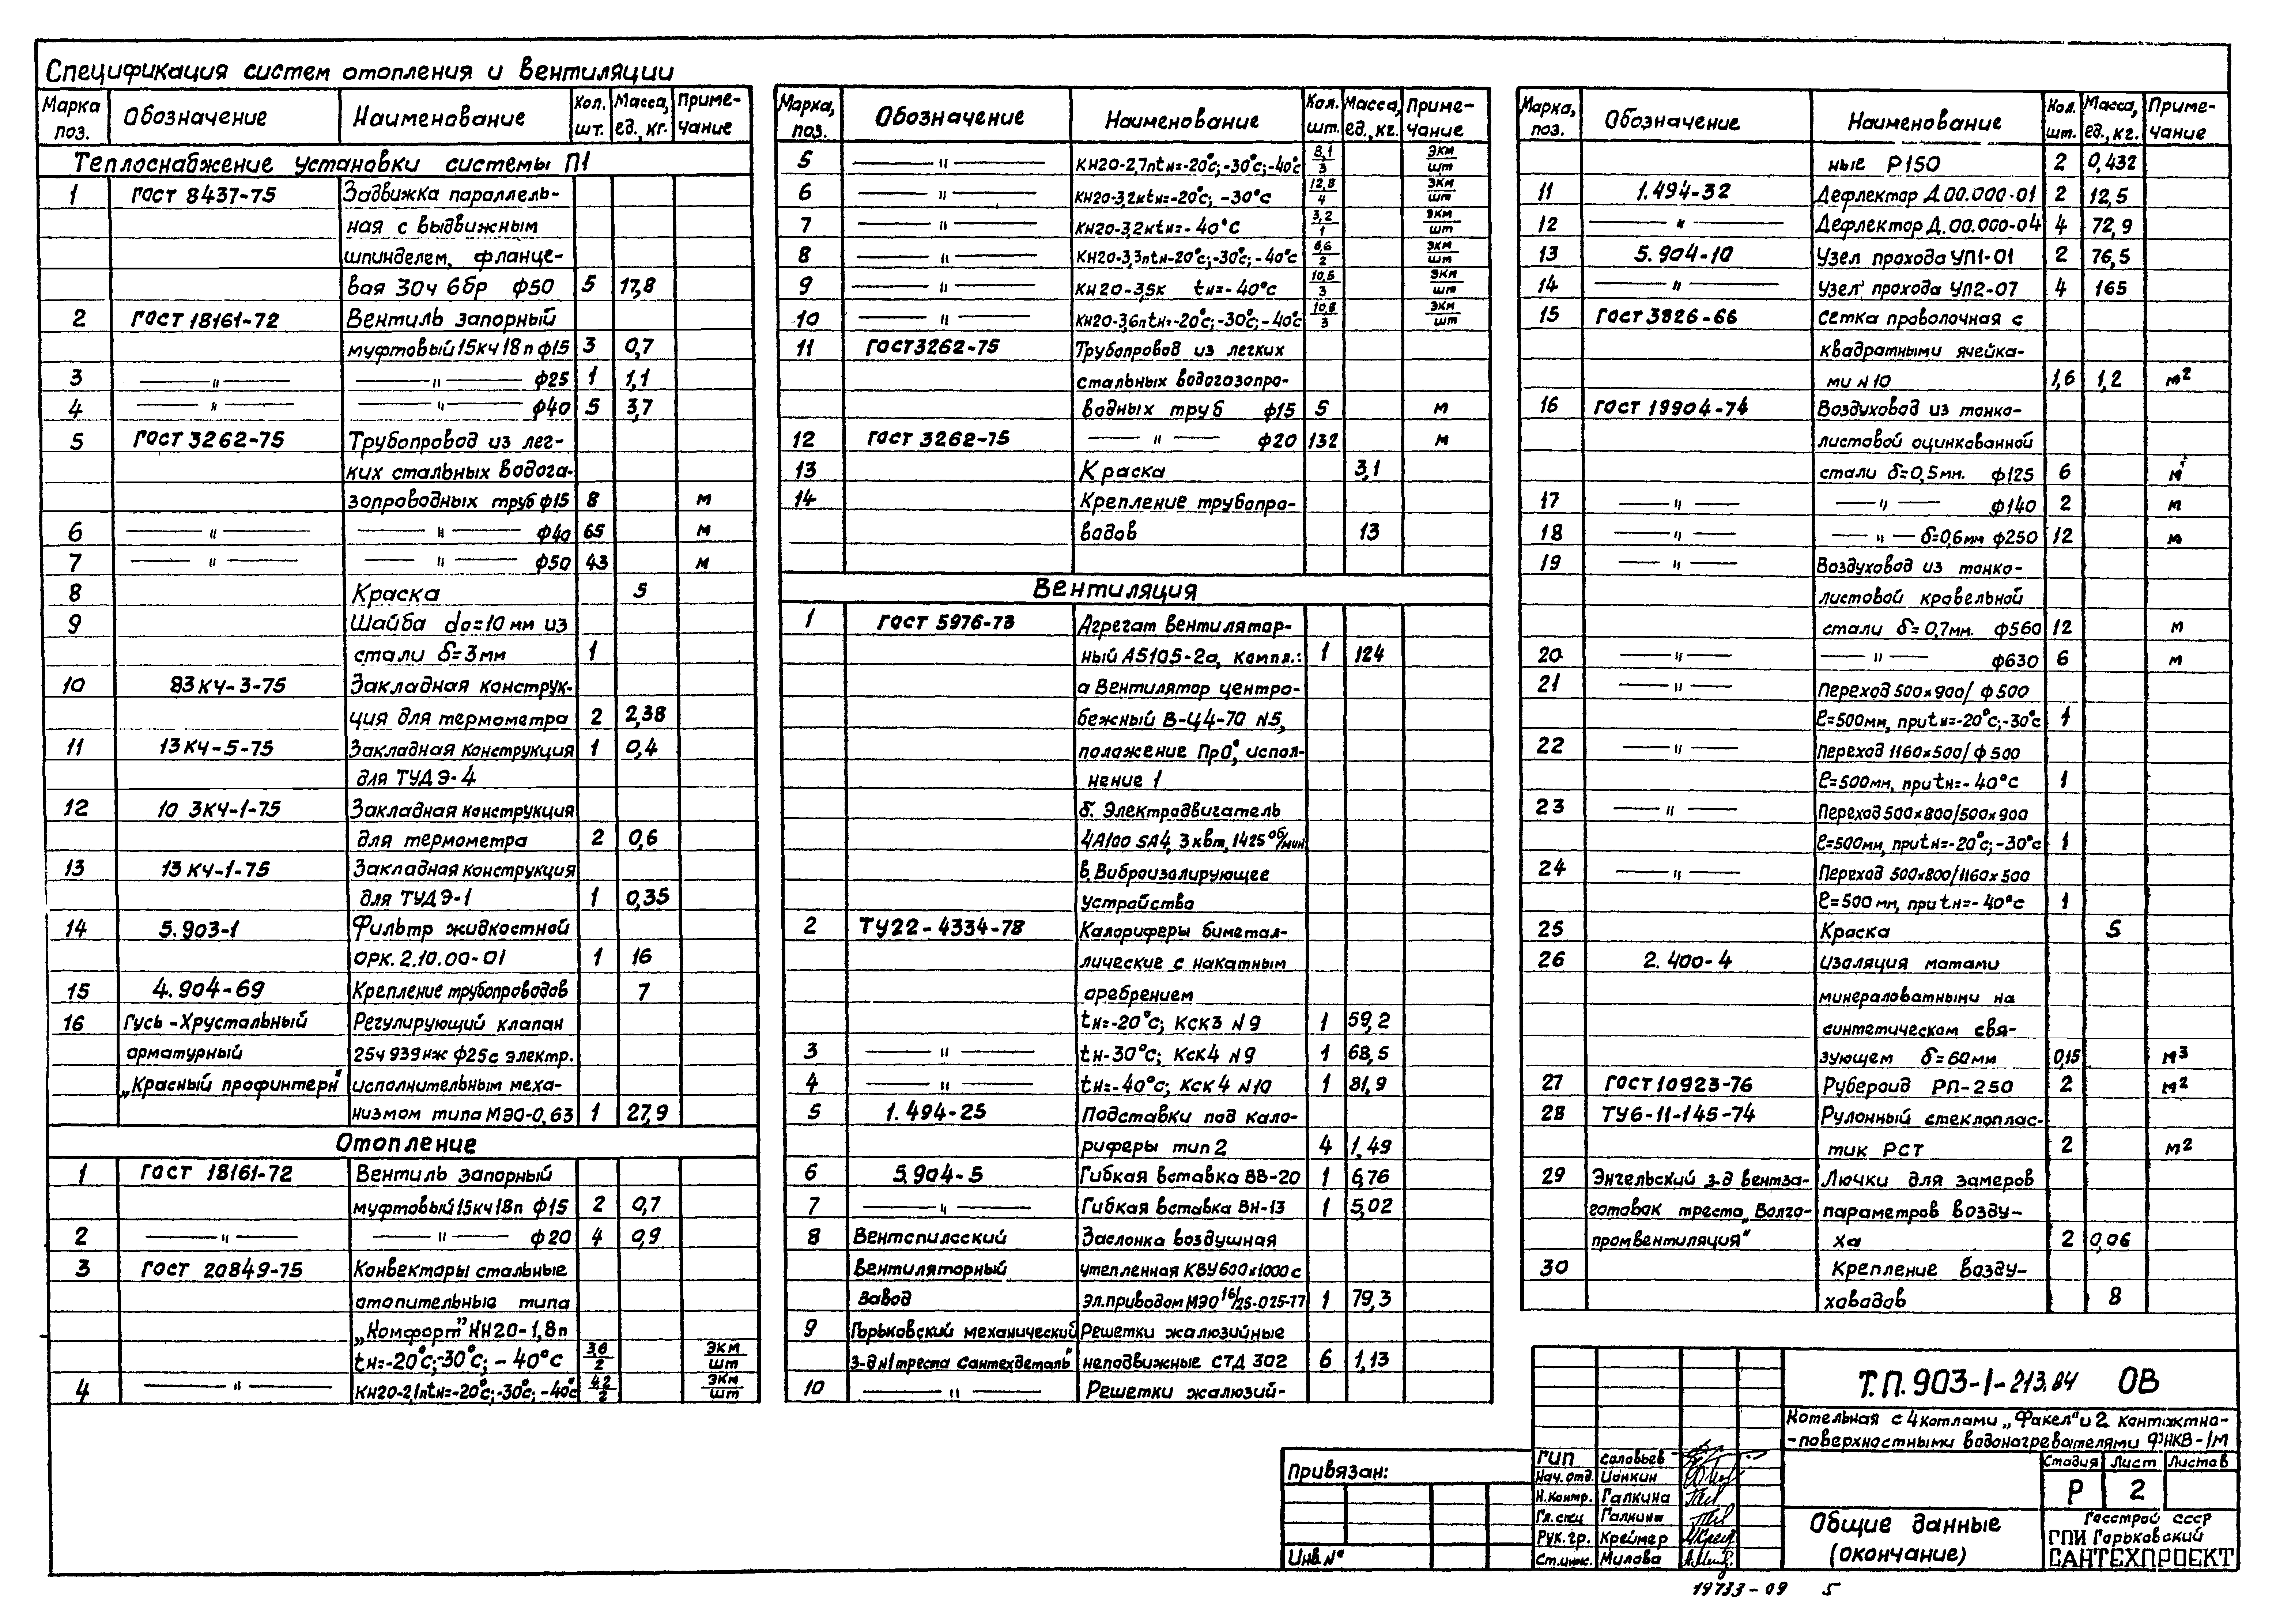 Спецификация систем отопления и вентиляции
Марка поз. Обозначение Наименование Кол. шт. Масса, ед., кг. Примечание
Теплоснабжение установки системы П1
1 ГОСТ 8437-75 Задвижка параллель-
ная с выдвижным
шпинделем, фланце-
вая 30ч 6бр ф50 5 17,8
2 ГОСТ 18161-72 Вентиль запорный
муфтовый 15кч 18п ф15 3 0,7
3 —〃— —〃— ф25 1 1,1
4 —〃— —〃— ф40 5 3,7
5 ГОСТ 3262-75 Трубопровод из лег-
ких стальных водога-
зопроводных труб ф15 8 м
6 —〃— —〃— ф40 65 м
7 —〃— —〃— ф50 43 м
8 Краска 5
9 Шайба dо=10 мм из
стали δ=3мм 1
10 83КЧ-3-75 Закладная конструк-
ция для термометра 2 2,38
11 13КЧ-5-75 Закладная конструкция 1 0,4
для ТУДЭ-4
12 10 ЗКЧ-1-75 Закладная конструкция
для термометра 2 0,6
13 13КЧ-1-75 Закладная конструкция
для ТУДЭ-1 1 0,35
14 5.903-1 Фильтр жидкостной
ОРК.2.10.00-01 1 16
15 4.904-69 Крепление трубопроводов 7
16 Гусь-Хрустальный Регулирующий клапан
арматурный 25ч 939нж ф25 с электр.
„Красный профинтерн" исполнительным меха-
низмом типа МЭО-0,63 1 27,9
Отопление
1 ГОСТ 18161-72 Вентиль запорный
муфтовый 15кч18п ф15 2 0,7
2 —〃— —〃— ф20 4 0,9
3 ГОСТ 20849-75 Конвекторы стальные
отопительные типа
„Комфорт" КН20-1,8п
tн=-20°с;-30°с; -40°с 3,6/2 ЭКМ/шт
4 —〃— КН20-2,1п tн=-20°с;-30°с; -40°с 4,2/2 ЭКМ/шт
Марка, поз. Обозначение Наименование Кол. шт. Масса, ед., кг. Примечание
5 —〃— КН20-2,7п tн=-20°с;-30°с;-40°с 8,1/3 ЭКМ/шт
6 —〃— КН20-3,2к tн=-20°с; -30°с 12,8/4 ЭКМ/шт
7 —〃— КН20-3,2к tн=-40°с 3,2/1 ЭКМ/шт
8 —〃— КН20-3,3п tн-20°с;-30°с; -40°с 6,6/2 ЭКМ/шт
9 —〃— КН20-3,5к tн=-40°с 10,5/3 ЭКМ/шт
10 —〃— КН20-3,6п tн=-20°с;-30°с; -40°с 10,8/3 ЭКМ/шт
11 ГОСТ3262-75 Трубопровод из легких
стальных водогазопро-
водных труб ф15 5 м
12 ГОСТ 3262-75 —〃— ф20 132 м
13 Краска 3,1
14 Крепление трубопро-
водов 13
Вентиляция
1 ГОСТ 5976-73 Агрегат вентилятор-
ный А5105-2а, компл.: 1 124
а Вентилятор центро-
бежный В-Ц4-70 N5,
положение Пр0°, испол-
нение 1
б. Электродвигатель
4А100 SА4, 3 квт, 1425 об/мин
в. Виброизолирующее
устройства
2 ТУ22-4334-78 Калориферы биметал-
лические с накатным
оребрением
tн=-20°с; КСк3 N9 1 59,2
3 —〃— tн-30°с; КСк4 N9 1 68,5
4 —〃— tн=-40°с; КСк 4 N10 1 81,9
5 1.494-25 Подставки под кало-
риферы тип 2 4 1,49
6 5.904-5 Гибкая вставка ВВ-20 1 6,76
7 —〃— Гибкая вставка ВН-13 1 5,02
8 Вентспилсский Заслонка воздушная
вентиляторный утепленная КВУ600х1000 с
завод Эл.приводом МЭО 16/25-025-77 1 79,3
9 Горьковский механический Решетки жалюзийные
з-д N1 треста „Сантехдеталь" неподвижные СТД 302 6 1,13
10 —〃— Решетки жалюзий-
Марка, поз. Обозначение Наименование Кол. шт. Масса, ед., кг. Примечание
ные Р150 2 0,432
11 1.494-32 Дефлектор Д.00.000-01 2 12,5
12 —〃— Дефлектор Д.00.000-04 4 72,9
13 5.904-10 Узел прохода УП1-01 2 76,5
14 —〃— Узел прохода УП2-07 4 165
15 ГОСТ 3826-66 Сетка проволочная с
квадратными ячейка-
ми N10 1,6 1,2 м²
16 ГОСТ 19904-74 Воздуховод из тонко-
листовой оцинкованной
стали δ=0,5мм. ф125 6 м
17 —〃— —〃— ф140 2 м
18 —〃— —〃— δ=0,6мм ф250 12 м
19 —〃— Воздуховод из тонко-
листовой кровельной
стали δ=0,7мм. ф560 12 м
20 —〃— —〃— ф630 6 м
21 —〃— Переход 500×900/ ф500
ℓ=500мм, при tн=-20°с;-30°с 1
22 —〃— Переход 1160×500/ ф500
ℓ=500мм, при tн=-40°с 1
23 —〃— Переход 500×800/500×900
ℓ=500мм, при tн=-20°с;-30°с 1
24 —〃— Переход 500×800/1160×500
ℓ=500 мм, при tн=-40°с 1
25 Краска 5
26 2.400-4 Изоляция матами
минераловатными на
синтетическом свя-
зующем δ=60мм 0,15 м³
27 ГОСТ10923-76 Рубероид РП-250 2 м²
28 ТУ6-11-145-74 Рулонный стеклоплас-
тик РСТ 2 м²
29 Энгельский з-д вентза- Лючки для замеров
готовок треста „Волго- параметров возду-
промвентиляция" ха 2 0,06
30 Крепление возду-
ховодов 8
Привязан:
Инв.№
ГИП Соловьев
Нач. отд. Ионкин
Н.контр. Галкина
Гл.спец Галкина
Рук.гр. Креймер
Ст.инж. Милова
Т.П.903-1-213.84 ОВ
Котельная с 4 котлами „Факел" и 2 контактно-
-поверхностными водонагревателями ФНКВ-1М
Стадия Лист Листов
Р 2
Общие данные
(окончание)
Госстрой СССР
ГПИ Горьковский
САНТЕХПРОЕКТ
19733-09 5